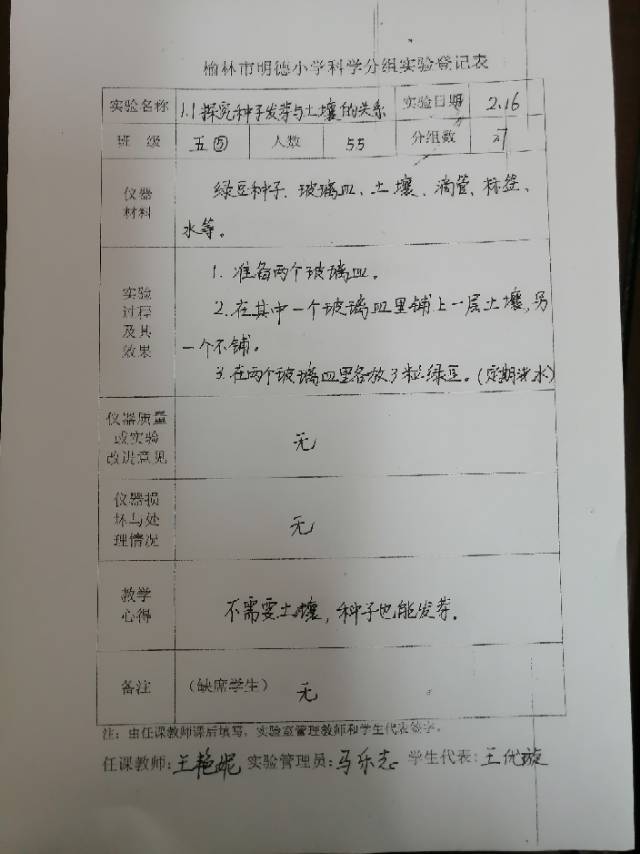 榆林市明德小学科学分组实验登记表
实验名称 1.1探究种子发芽与土壤的关系 实验日期 2.16
班 级 五⑤ 人数 55 分组数
仪器
材料
绿豆种子、玻璃皿、土壤、滴管、标签、
水等。
实验
过程
及其
效果
1. 准备两个玻璃皿。
2.在其中一个玻璃皿里铺上一层土壤,另
一个不铺。
3.在两个玻璃皿里各放3粒绿豆。(定期浇水)
仪器质量
或实验
改进意见
无
仪器损
坏与处
理情况
无
教学
心得
不需要土壤,种子也能发芽。
备注 (缺席学生) 无
注:由任课教师课后填写,实验室管理教师和学生代表签字。
任课教师:王艳妮 实验管理员:马乐志 学生代表:王优璇